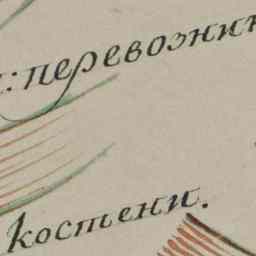 : перевозник
костени.